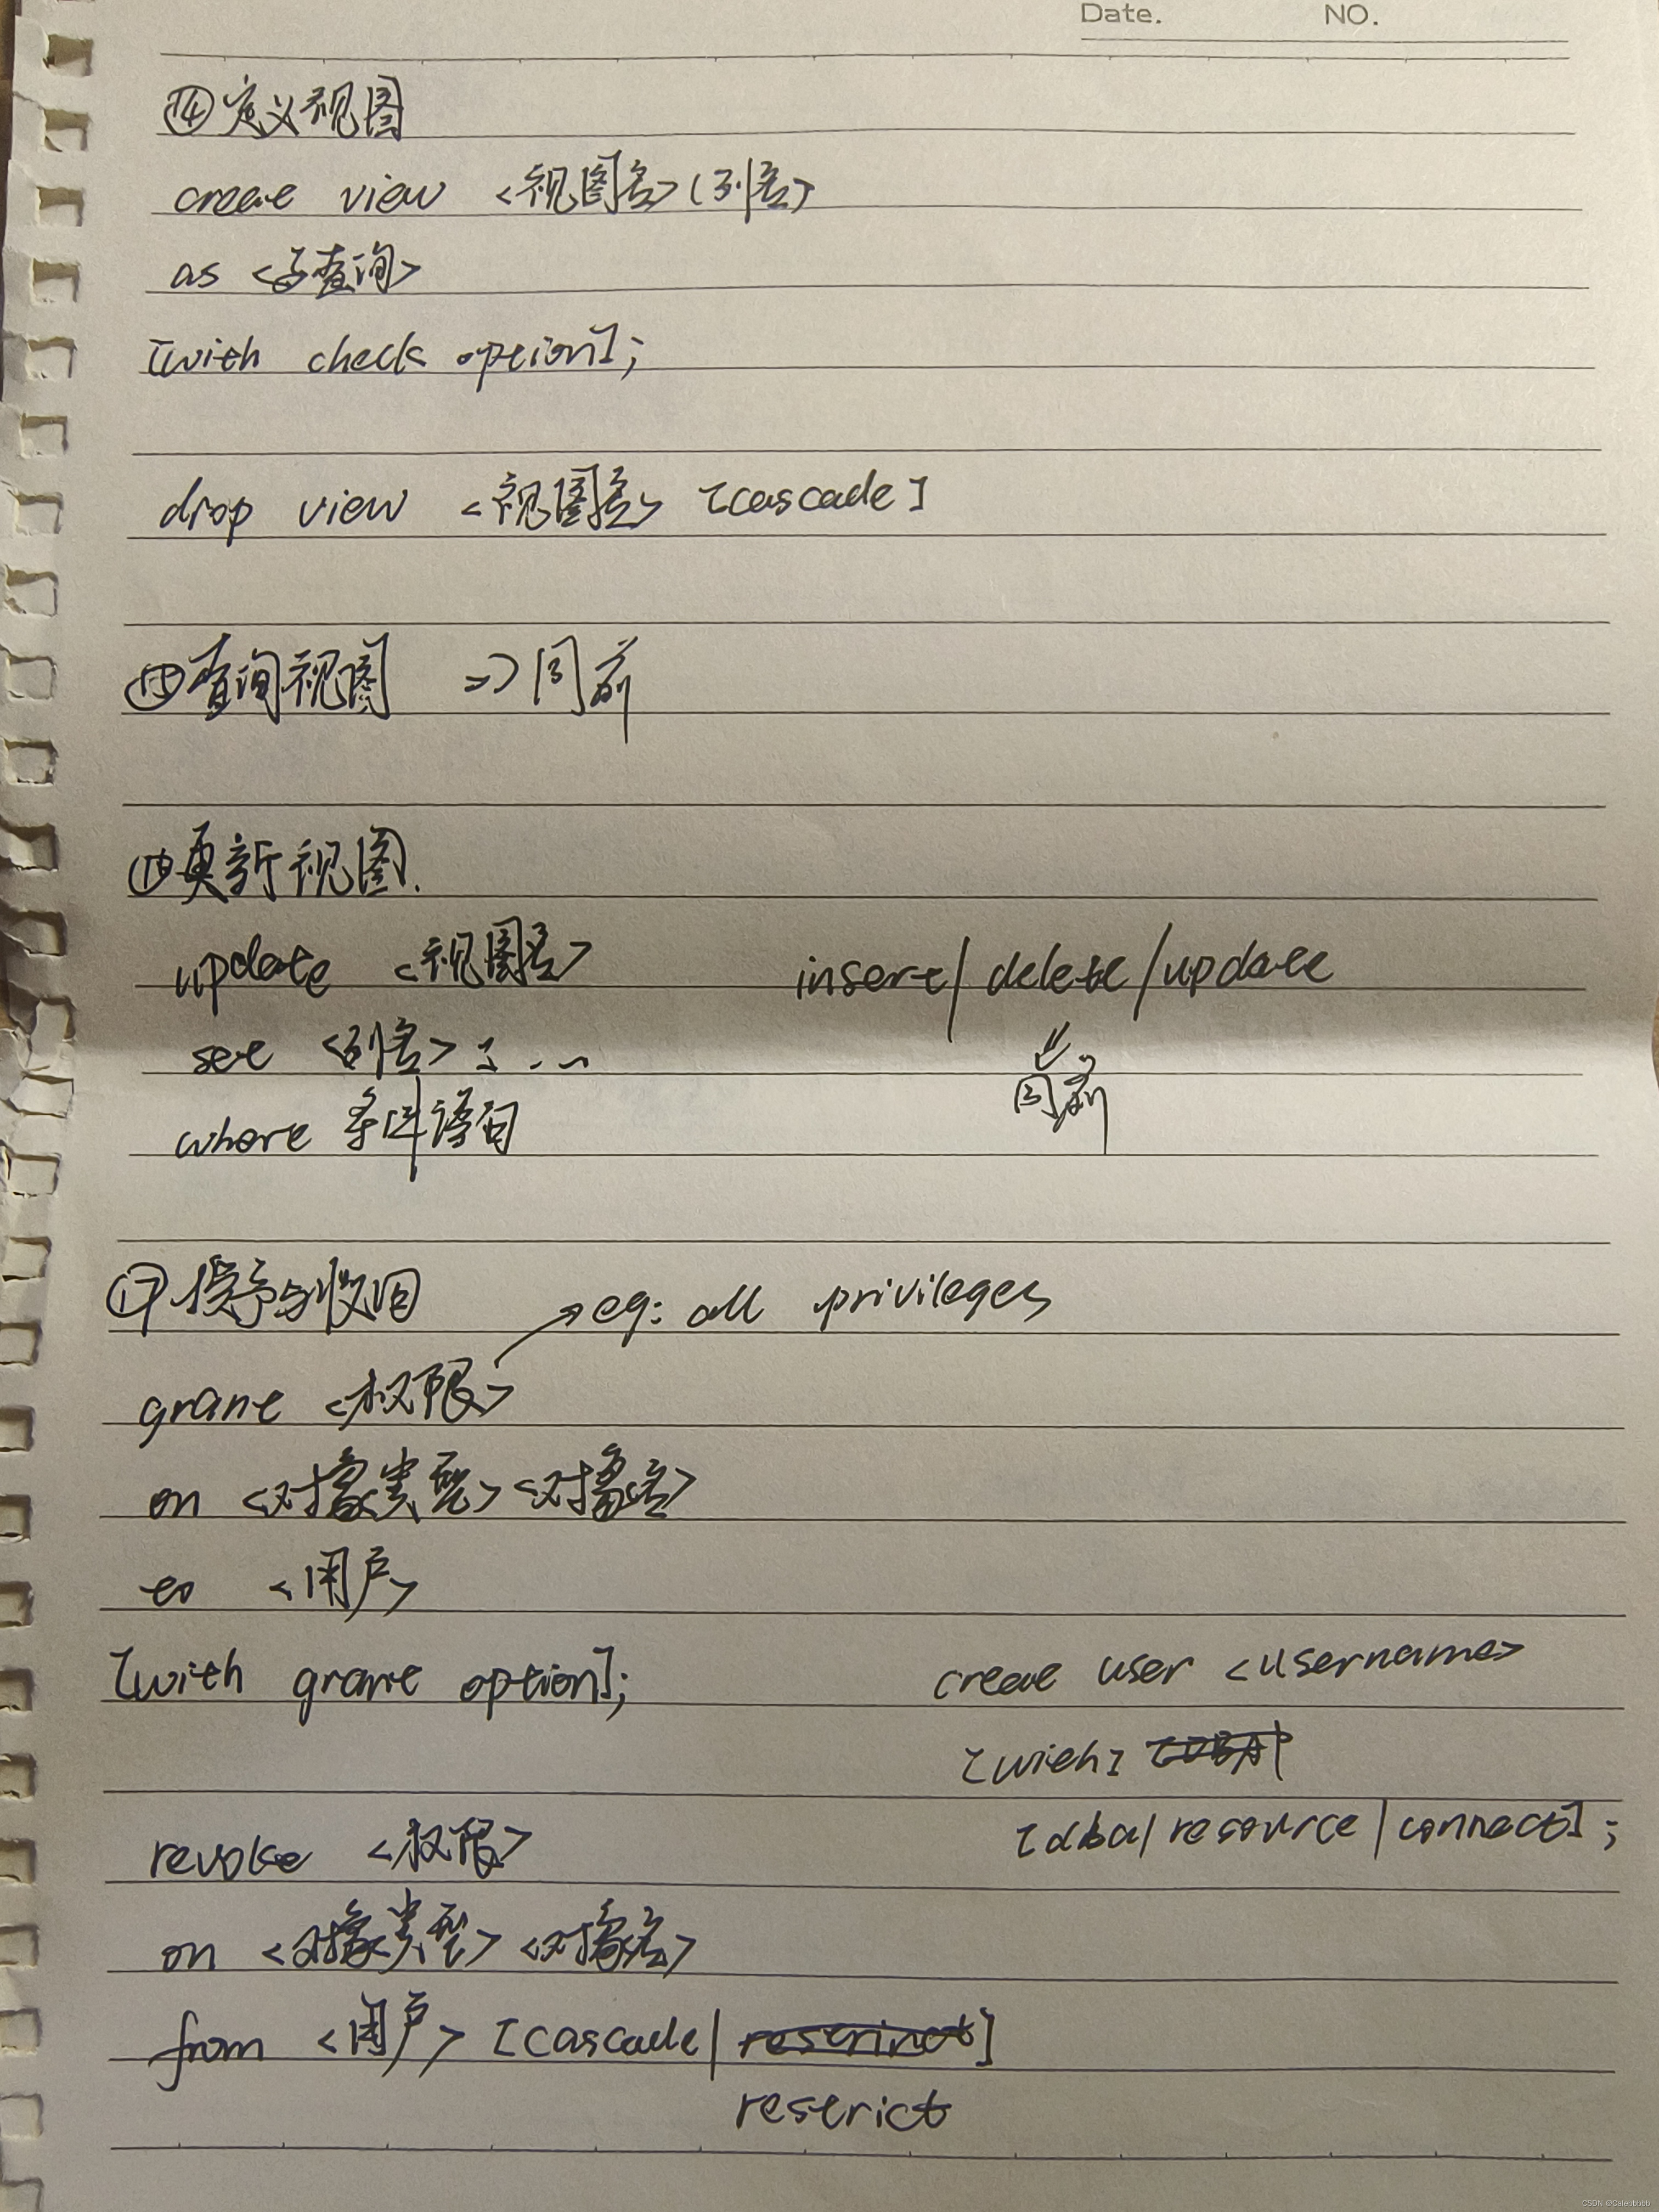 Date. NO.
⑭定义视图
create view <视图名>(列名)
as <子查询>
[with check option];
drop view <视图名> [cascade]
⑮查询视图 => 同前
⑯更新视图.
update <视图名> insert/delete/update
set <列名> = ...
同前
where 条件语句
⑰授予与收回
eg: all privileges
grant <权限>
on <对象类型><对象名>
to <用户>
[with grant option];
create user <username>
[with]
[dba|resource|connect];
revoke <权限>
on <对象类型><对象名>
from <用户> [cascade| ]
restrict
CSDN @Calebbbbb